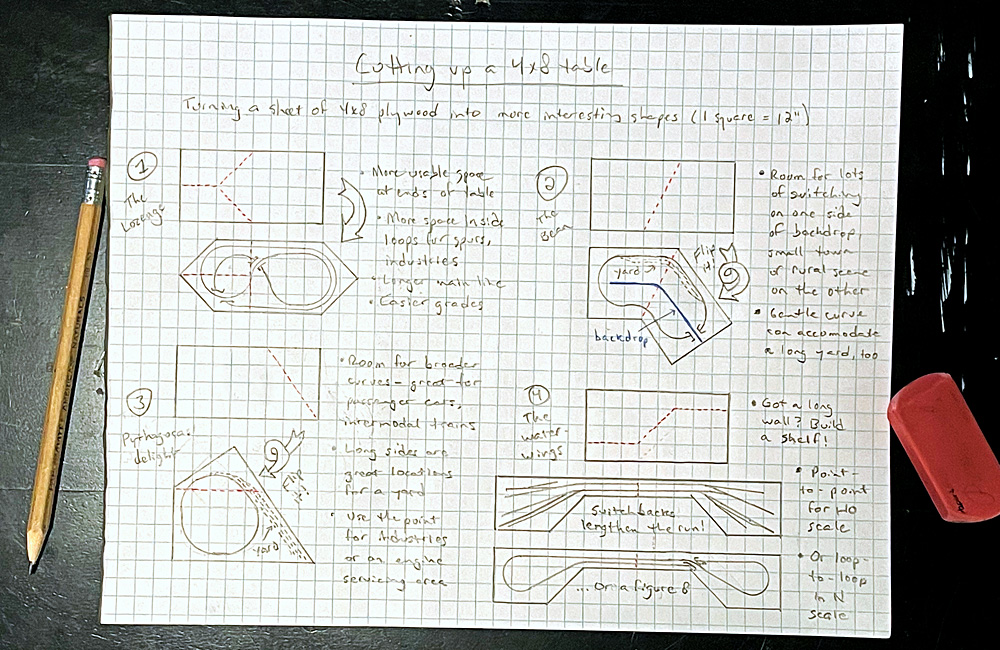 Cutting up a 4x8 table
Turning a sheet of 4x8 plywood into more interesting shapes (1 square = 12")
1
The
Lozenge
• More usable space
at ends of table
• More space inside
loops for spurs,
industries
• Longer main line
• Easier grades
2
The
Bean
Flip
it!
yard
backdrop
• Room for lots
of switching
on one side
of backdrop,
small town
or rural scene
on the other
• Gentle curve
can accomodate
a long yard, too
3
Pythagoras'
delight
Flip
it!
yard
• Room for broader
curves - great for
passenger cars,
intermodal trains
• Long sides are
great locations
for a yard
• Use the point
for industries
or an engine
servicing area
4
The
water-
wings
• Got a long
wall? Build
a shelf!
Switchbacks
lengthen the run!
• Point-
to-point
for HO
scale
... Or a figure 8
• Or loop-
to-loop
in N
scale